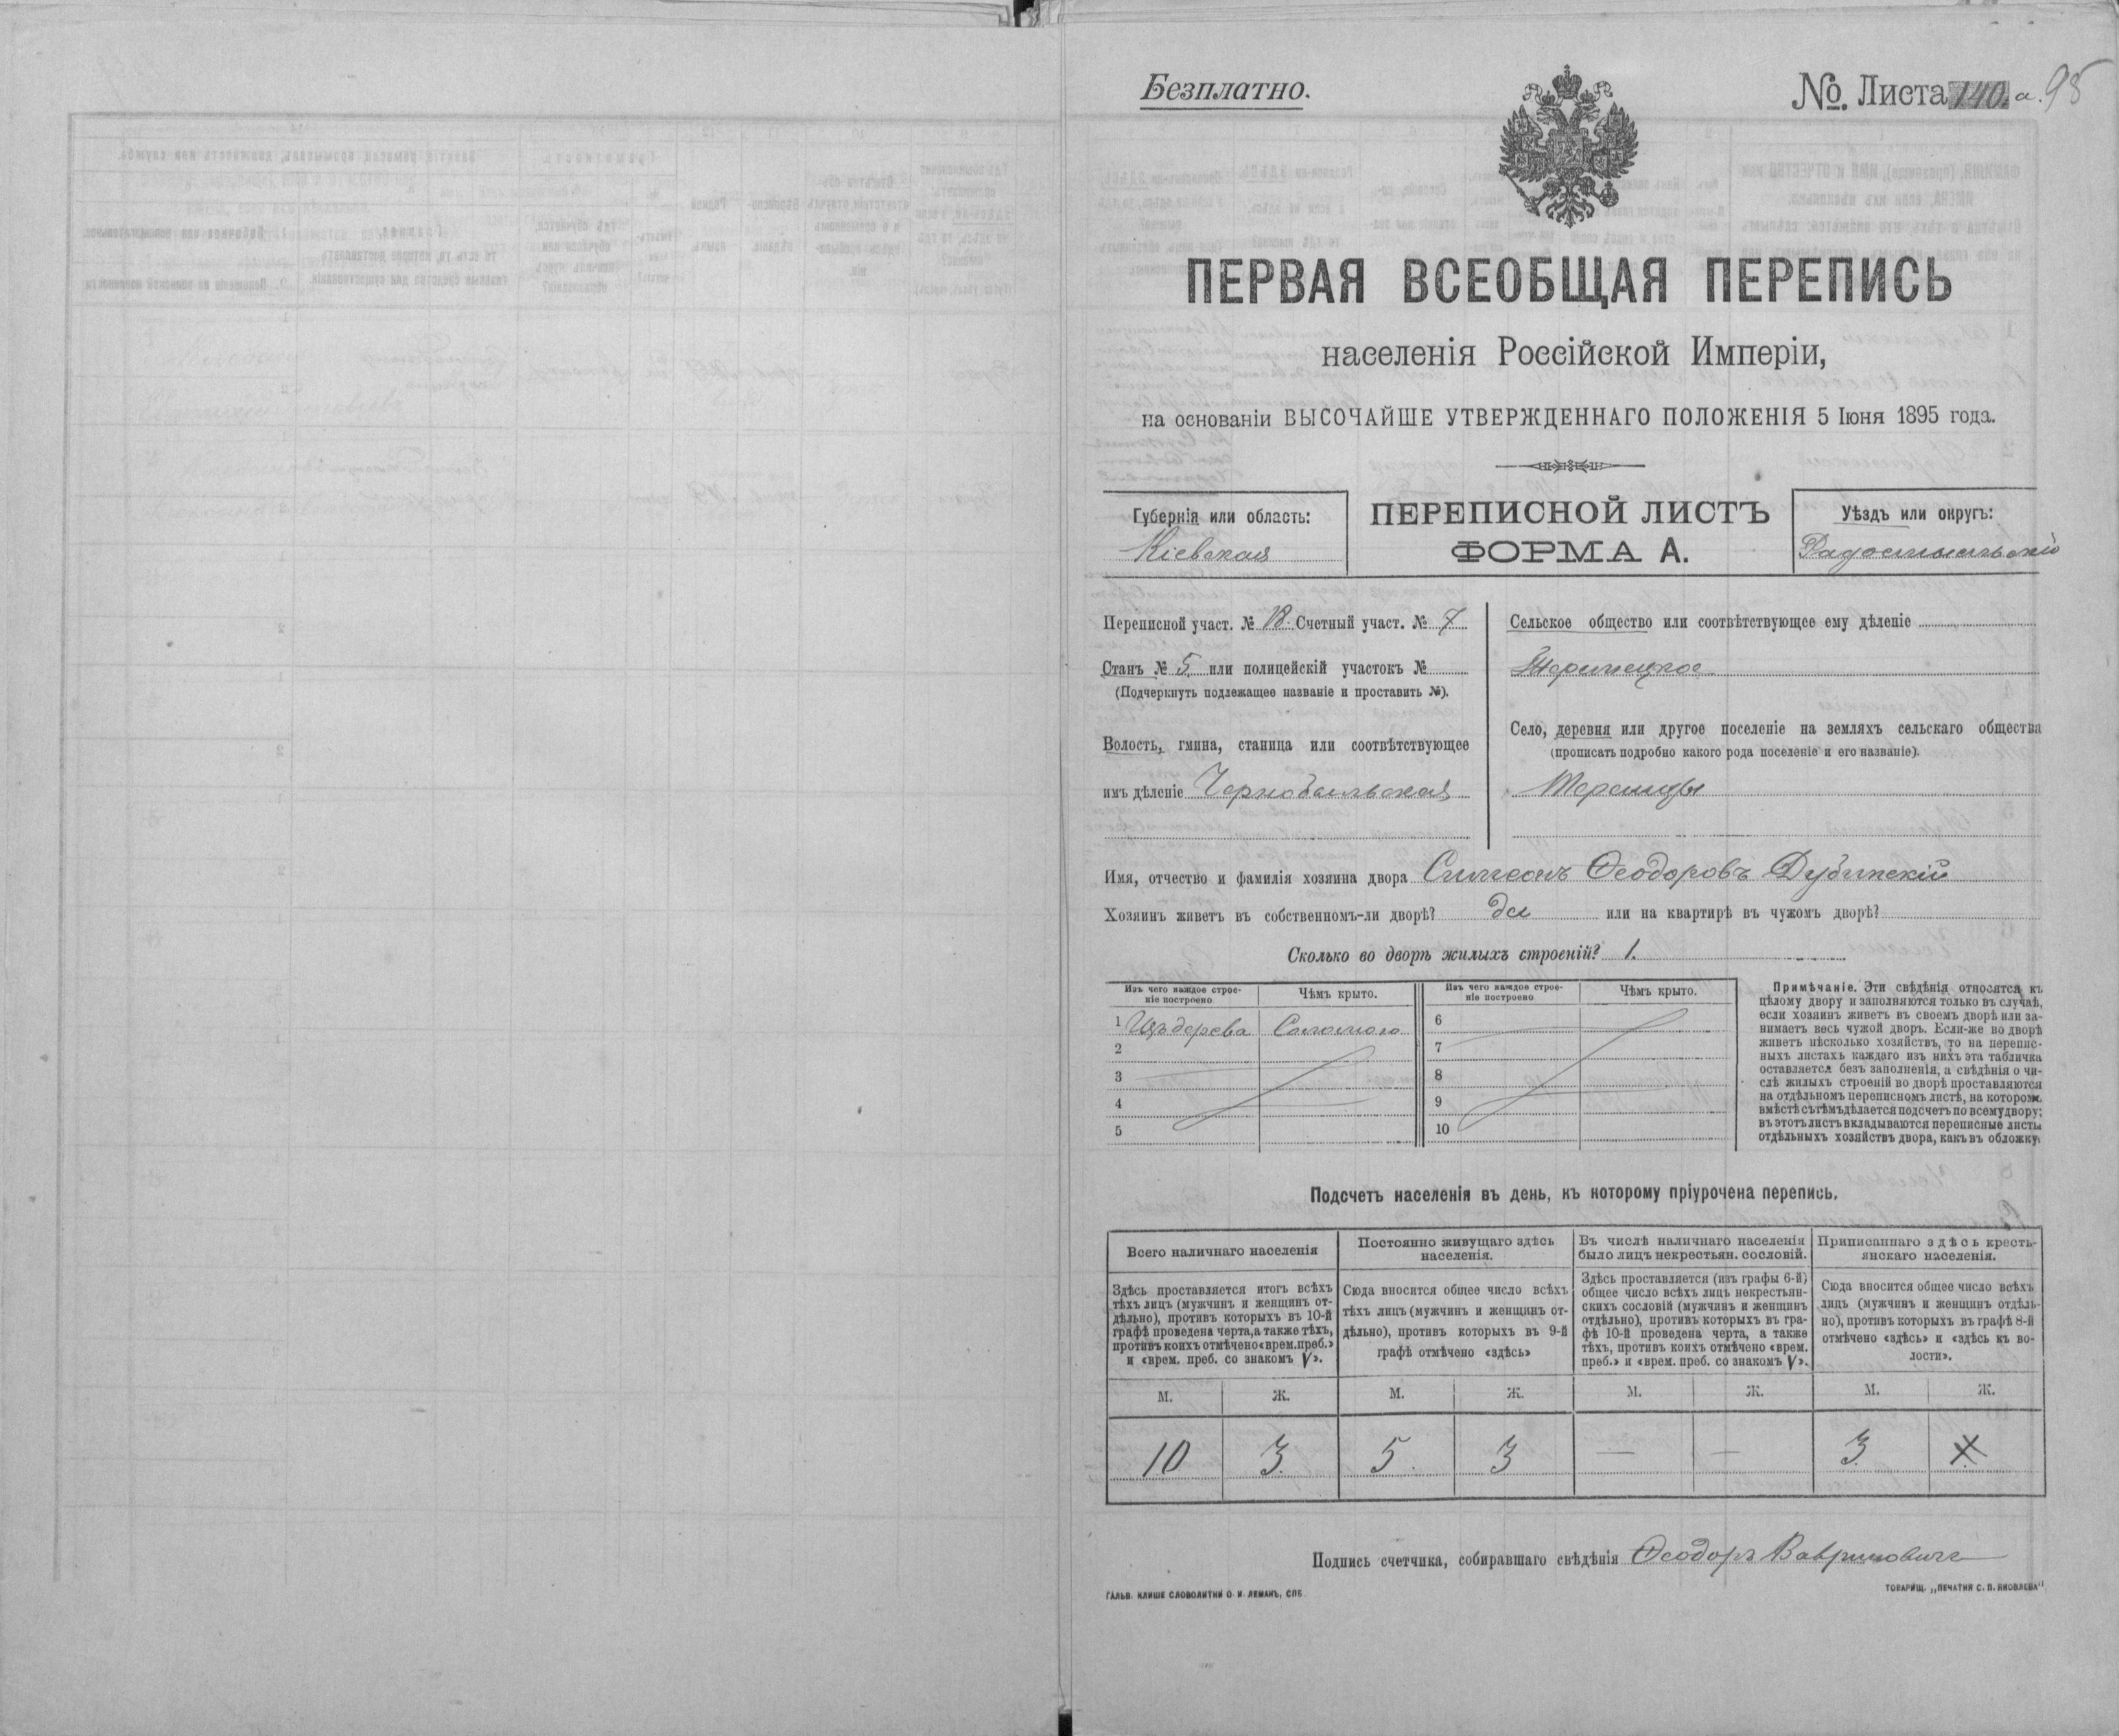 Безплатно.
№. Листа 140. а. 95
ПЕРВАЯ ВСЕОБЩАЯ ПЕРЕПИСЬ
населенія Россійской Имперіи,
на основаніи ВЫСОЧАЙШЕ УТВЕРЖДЕННАГО ПОЛОЖЕНІЯ 5 Іюня 1895 года.
Губернія или область:
Кіевская
ПЕРЕПИСНОЙ ЛИСТЪ
ФОРМА А.
Уѣздъ или округъ:
Радомысльскій
Переписной участ. № 18. Счетный участ. № 7
Станъ № 5, или полицейскій участокъ №
(Подчеркнуть подлежащее названіе и проставить №).
Волость, гмина, станица или соотвѣтствующее
имъ дѣленіе Чернобыльская
Сельское общество или соотвѣтствующее ему дѣленіе
Теремецкое
Село, деревня или другое поселеніе на земляхъ сельскаго общества
(прописать подробно какого рода поселеніе и его названіе).
Теремцы
Имя, отчество и фамилія хозяина двора Симеонъ Ѳеодоровъ Дубинскій
Хозяинъ живетъ въ собственномъ-ли дворѣ? да или на квартирѣ въ чужомъ дворѣ?
Сколько во дворѣ жилыхъ строеній? 1.
Изъ чего каждое строе-
ніе построено
Чѣмъ крыто.
Изъ чего каждое строе-
ніе построено
Чѣмъ крыто.
1 Изъ дерева Соломою
2
3
4
5
6
7
8
9
10
Примѣчаніе. Эти свѣдѣнія относятся къ
цѣлому двору и заполняются только въ случаѣ,
если хозяинъ живетъ въ своемъ дворѣ или за-
нимаетъ весь чужой дворъ. Если-же во дворѣ
живетъ нѣсколько хозяйствъ, то на перепис-
ныхъ листахъ каждаго изъ нихъ эта табличка
оставляется безъ заполненія, а свѣдѣнія о чи-
слѣ жилыхъ строеній во дворѣ проставляются
на отдѣльномъ переписномъ листѣ, на которомъ
вмѣстѣ съ тѣмъ дѣлается подсчетъ по всему двору;
въ этотъ листъ вкладываются переписные листы
отдѣльныхъ хозяйствъ двора, какъ въ обложку.
Подсчетъ населенія въ день, къ которому пріурочена перепись.
Всего наличнаго населенія
Здѣсь проставляется итогъ всѣхъ
тѣхъ лицъ (мужчинъ и женщинъ от-
дѣльно), противъ которыхъ въ 10-й
графѣ проведена черта, а также тѣхъ,
противъ коихъ отмѣчено «врем. преб.»
и «врем. преб. со знакомъ V».
Постоянно живущаго здѣсь
населенія.
Сюда вносится общее число всѣхъ
тѣхъ лицъ (мужчинъ и женщинъ от-
дѣльно), противъ которыхъ въ 9-й
графѣ отмѣчено «здѣсь»
Въ числѣ наличнаго населенія
было лицъ некрестьян. сословій.
Здѣсь проставляется (изъ графы 6-й)
общее число всѣхъ лицъ некрестьян-
скихъ сословій (мужчинъ и женщинъ
отдѣльно), противъ которыхъ въ гра-
фѣ 10-й проведена черта, а также
тѣхъ, противъ коихъ отмѣчено «врем.
преб.» и «врем. преб. со знакомъ V».
Приписаннаго здѣсь кресть-
янскаго населенія.
Сюда вносится общее число всѣхъ
лицъ (мужчинъ и женщинъ отдѣль-
но), противъ которыхъ въ графѣ 8-й
отмѣчено «здѣсь» и «здѣсь къ во-
лости».
М. Ж. М. Ж. М. Ж. М. Ж.
10 3. 5. 3 — — 3
Подпись счетчика, собиравшаго свѣдѣнія Ѳеодоръ Вавриновичъ
ГАЛЬВ. КЛИШЕ СЛОВОЛИТНИ О. И. ЛЕМАНЪ, СПБ.
ТОВАРИЩ. „ПЕЧАТНЯ С. П. ЯКОВЛЕВА“